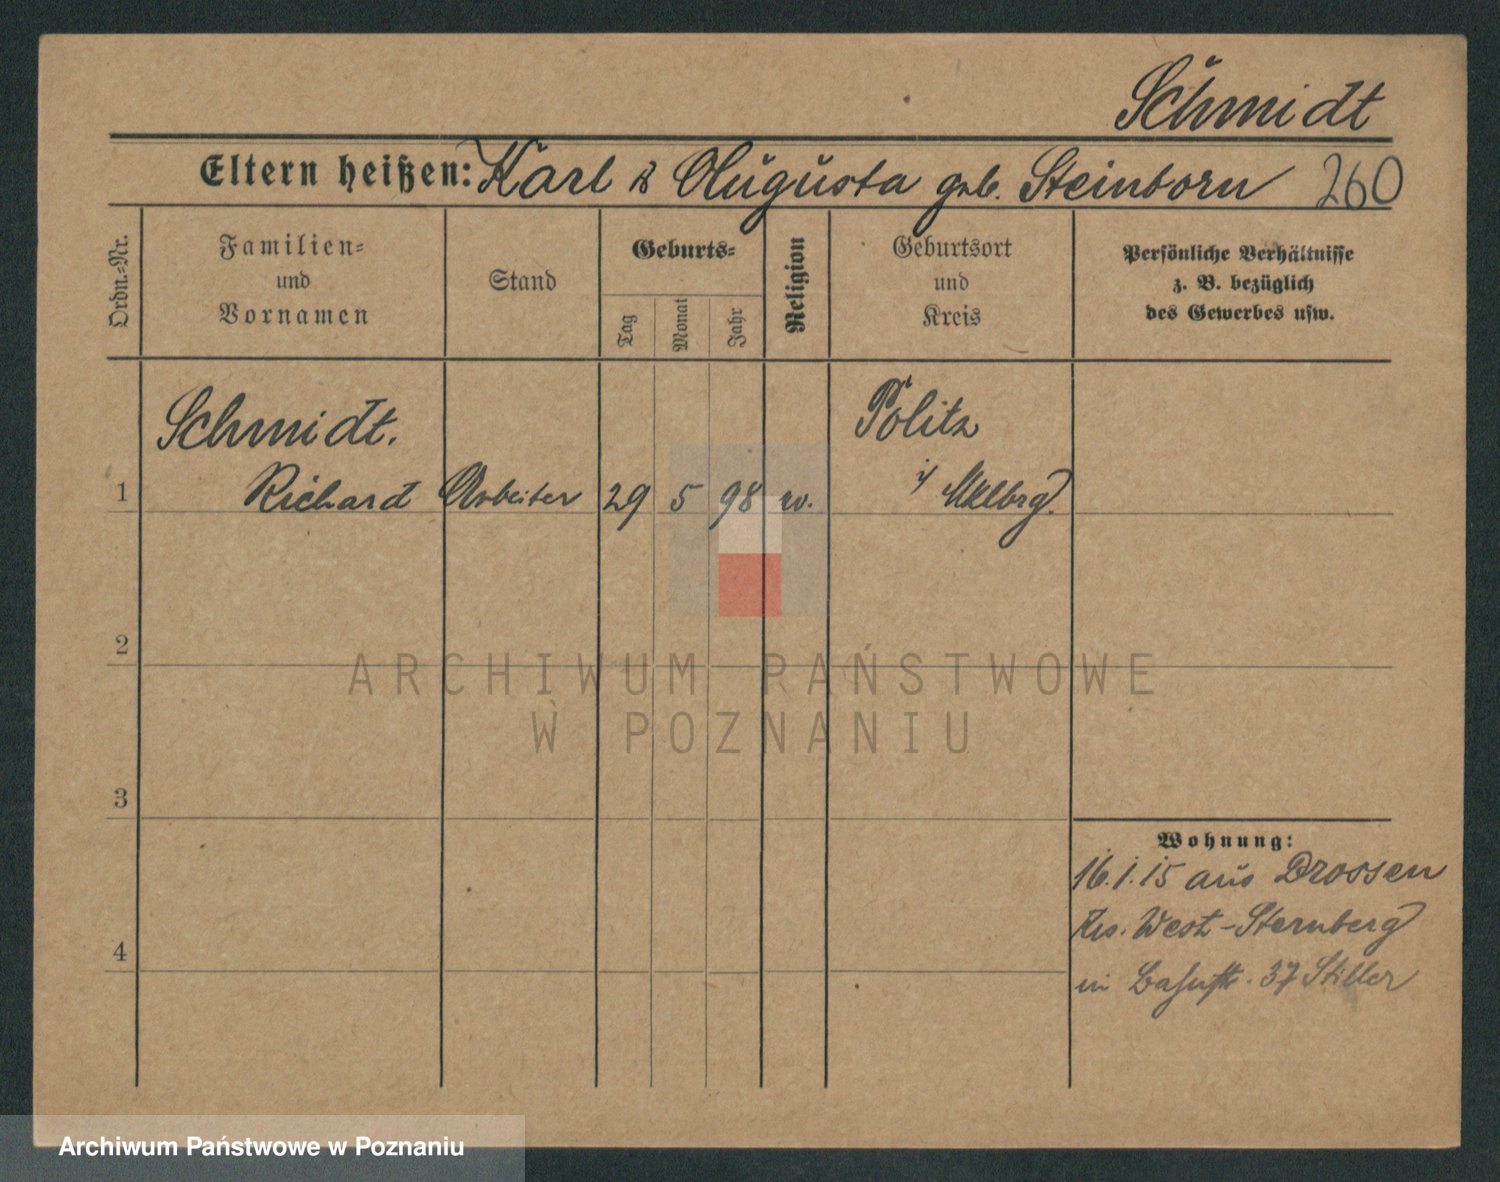 Schmidt
Eltern heißen: Karl & Augusta geb. Steinborn 260
Ordn.-Nr.
Familien-
und
Vornamen
Stand
Geburts-
Tag
Monat
Jahr
Religion
Geburtsort
und
Kreis
Persönliche Verhältnisse
z. B. bezüglich
des Gewerbes usw.
Schmidt.
Pölitz
1 Richard Arbeiter 29 5 98 ev. i/ Mklbrg.
2
ARCHIWUM PAŃSTWOWE
W POZNANIU
3
Wohnung:
16.1.15 aus Drossen
Krs. West-Sternberg
4
in Bahnstr. 37 Stiller
Archiwum Państwowe w Poznaniu